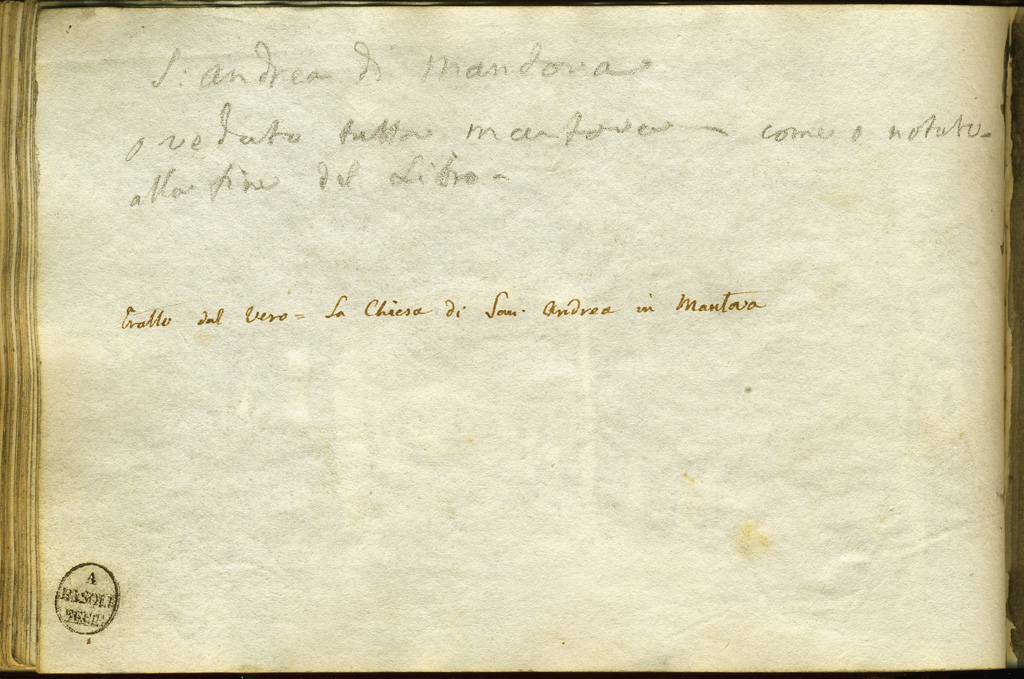 S: Andrea di Mandova
o veduto tutta mantova come o notato
alla fine del Libro -
Tratto dal Vero = La Chiesa di San. Andrea in Mantova
A
BASOLI